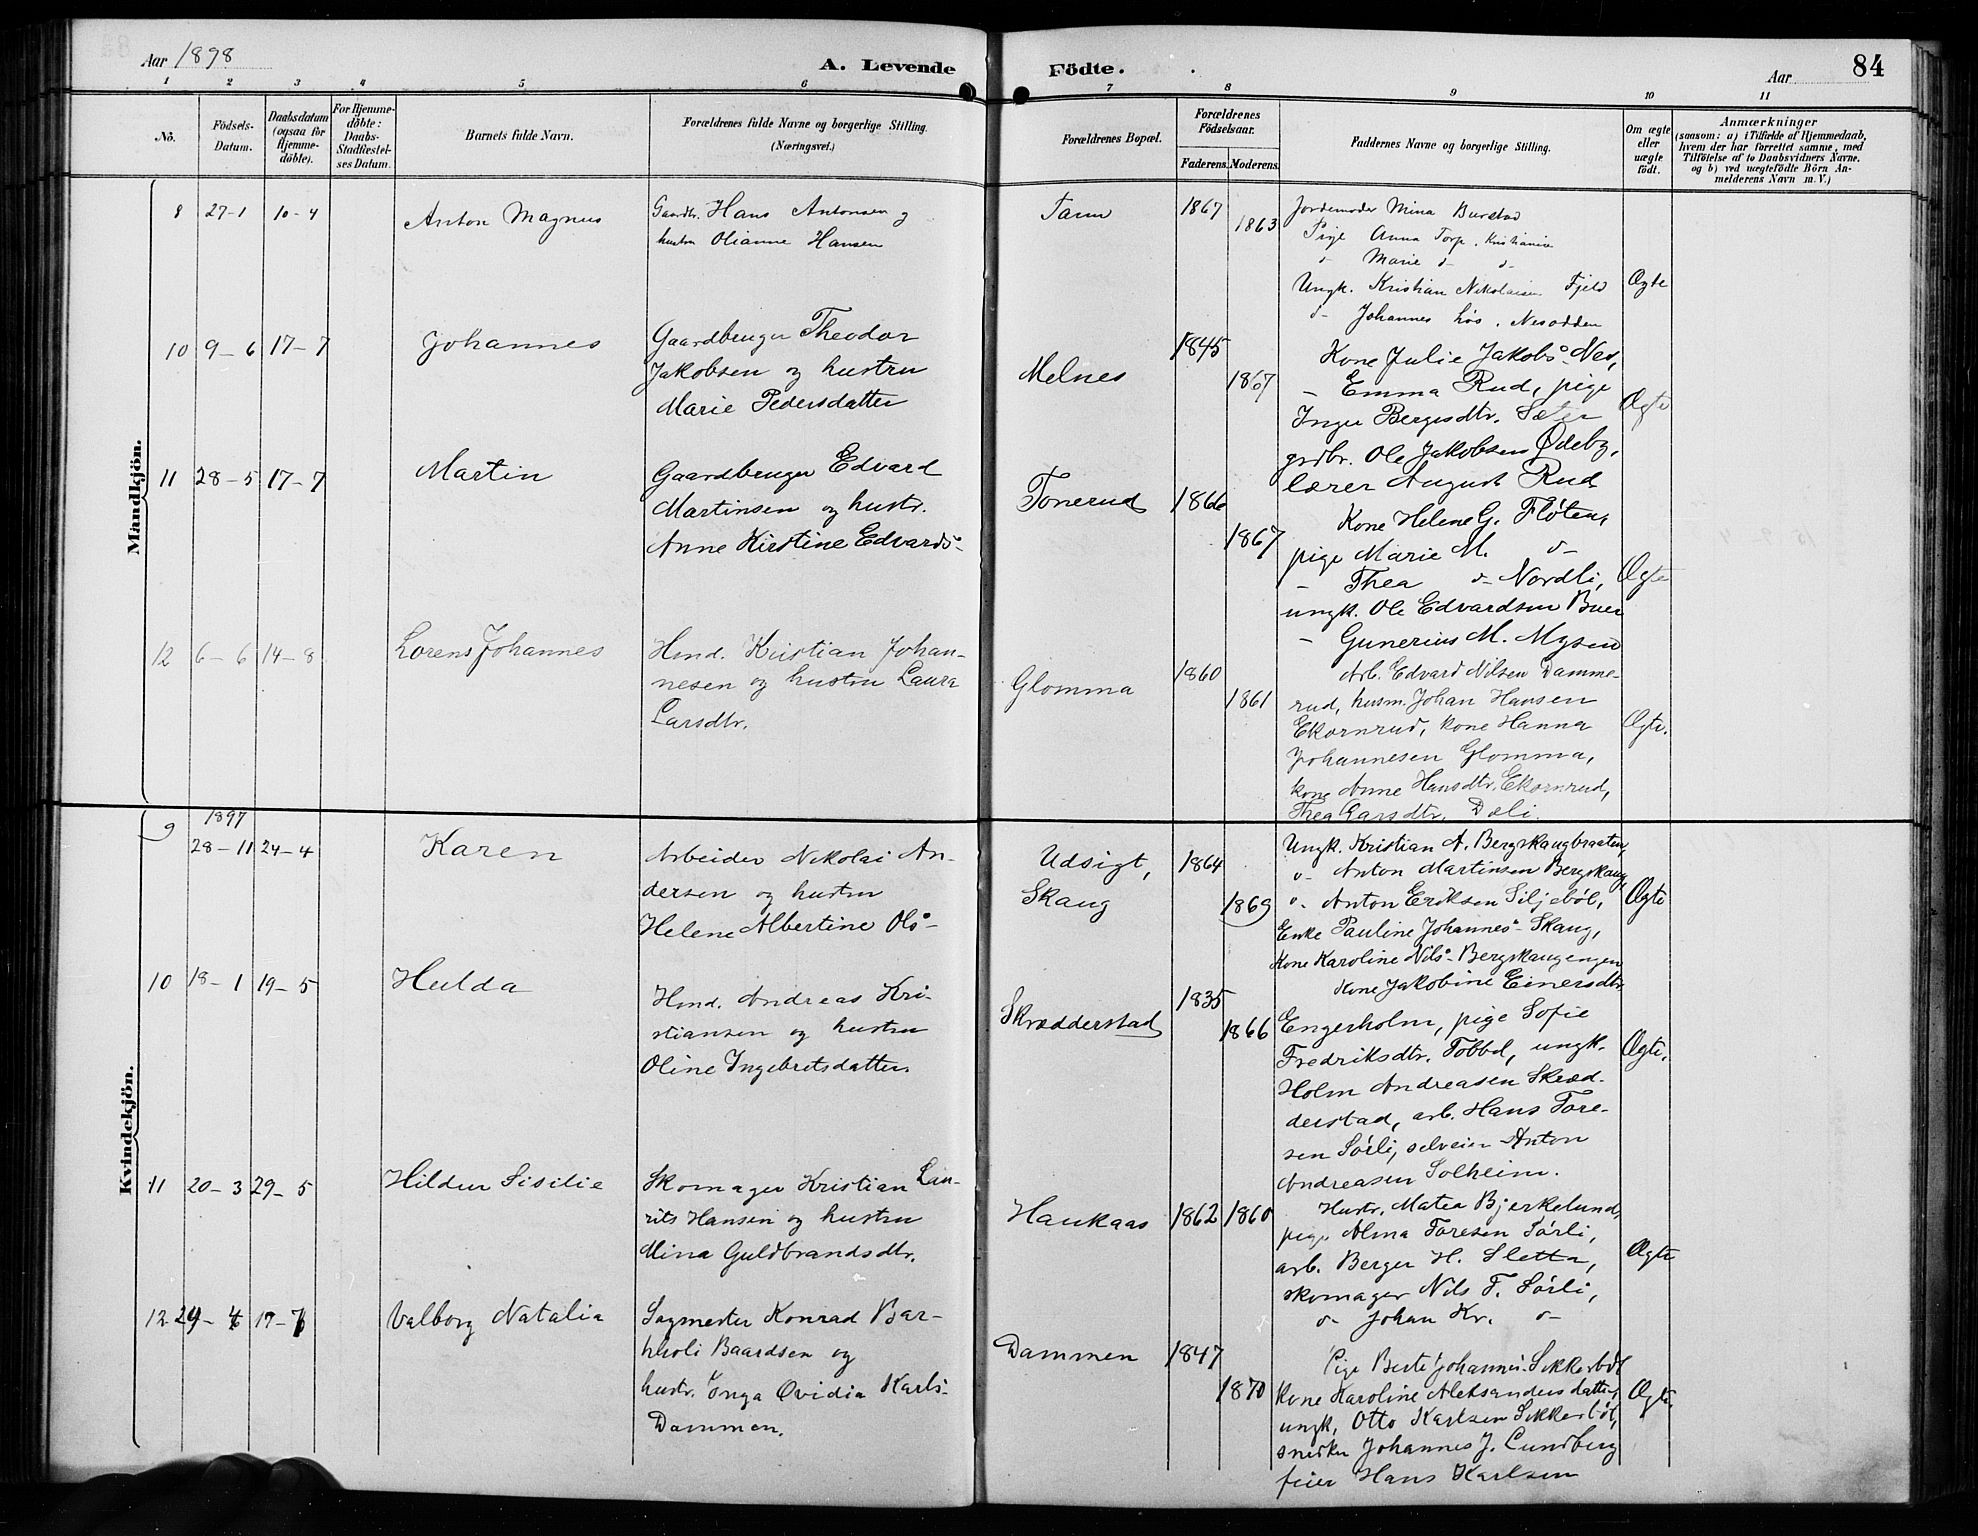 Aar 1898
A. Levende Födte.
Aar
84
1 2 3 4 5 6 7 8 9 10 11
No.
Födsels-Datum.
Daabsdatum (ogsaa for Hjemmedöbte).
For Hjemmedöbte: Daabs-Stadfæstelses Datum.
Barnets fulde Navn.
Forældrenes fulde Navne og borgerlige Stilling. (Næringsvei.)
Forældrenes Bopæl.
Forældrenes Födselsaar.
Faderens. Moderens.
Faddernes Navne og borgerlige Stilling.
Om ægte eller uægte födt.
Anmærkninger
(saasom: a) i Tilfælde af Hjemmedaab,
hvem der har forrettet samme, med
Tilföielse af to Daabsvidners Navne.
og b) ved uægtefödte Börn An-
melderens Navn m. V.)
Mandkjön.
8 27-1 10-4
Anton Magnus
Gaardbr. Hans Antonsen og
hustru Olianne Hansen
Tarm
1867
1863
Jordemoder Mina Burstad
Pige Anna Torp, Kristiania
d- Marie d- d-
Ungk. Kristian Nikolaisen Fjeld
d- Johannes hös. Nesodden
Ægte
10 9-6 17-7
Johannes
Gaardbruger Theodor
Jakobsen og hustru
Marie Pedersdatter
Melnes
1845
1867
Kone Julie Jakobs- Nes,
- Emma Rud, pige
Inger Bergesdtr. Sæter
grdbr. Ole Jakobsen Ødeby,
lærer August Rud
Ægte
11 28-5 17-7
Martin
Gaardbruger Edvard
Martinsen og hustr.
Anne Kirstine Edvards-
Tonerud
1866
1867
Kone Helene G. Flöten,
pige Marie M. d-
- Thea d- Nordli,
ungk. Ole Edvardsen Buer
- Gunerius M. Mysen
Ægte
12 6-6 14-8
Lorens Johannes
Hmd. Kristian Johan-
nesen og hustru Laura
Larsdtr.
Glomma
1860
1861
Arb. Edvard Nilsen Damme-
rud, husm. Johan Hansen
Ekornrud, kone Hanna
Johannesen Glomma,
kone Anne Hansdtr. Ekornrud,
Thea Larsdtr. Dæli.
Ægte.
Kvindekjön.
9 1897
28-11 24-4
Karen
Arbeider Nikolai An-
dersen og hustru
Helene Albertine Ols-
Udsigt,
Skaug
1864
1869
Ungk. Kristian A. Bergskaugbraaten,
d- Anton Martinsen Bergskaug
d- Anton Eriksen Siljeböl,
Enke Pauline Johannes- Skaug,
Kone Karoline Nils- Bergskaugengen
Ægte
10 18-1 19-5
Hulda
Hmd. Andreas Kri-
stiansen og hustru
Oline Ingebretsdatter.
Skrædderstad
1835
1866
Kone Jakobine Einersdtr
Engerholm, pige Sofie
Fredriksdtr. Tobbol, ungk.
Holm Andreasen Skræd-
derstad, arb. Hans Tore-
sen Sörli, selveier Anton
Andreasen Solheim.
Ægte.
11 20-3 29-5
Hildur Sisilie
Skomager Kristian Lau-
rits Hansen og hustru
Mina Guldbrandsdtr.
Haukaas
1862 1860
Hustr. Matea Bjerkelund,
pige Alma Toresen Sörli,
arb. Berger H. Sletta,
skomager Nils T. Sörli,
d- Johan Kr. d-
Ægte
12 29-4 17-7
Valborg Natalia
Sagmester Konrad Bar-
tholi Baardsen og
hustr. Inga Ovidia Karls-
Dammen.
Dammen
1847
1870
Pige Berte Johannes- Sikkerböl
kone Karoline Aleksandersdatter,
ungk. Otto Karlsen Sikkerböl,
snedker Johannes J. Lundberg
feier Hans Karlsen
Ægte.